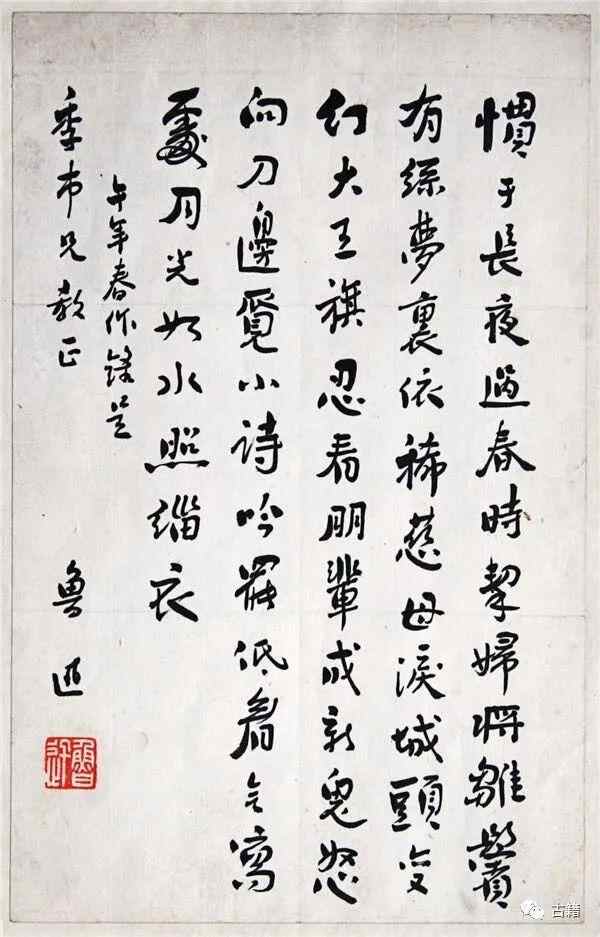 慣于長夜過春時挈婦将雛鬢
有絲夢裏依稀慈母淚城頭变
幻大王旗忍看朋輩成新鬼怒
向刀邊覓小詩吟罷低眉無寫
處月光如水照緇衣
午年春作錄呈
季巿兄教正
魯迅
魯迅
古籍